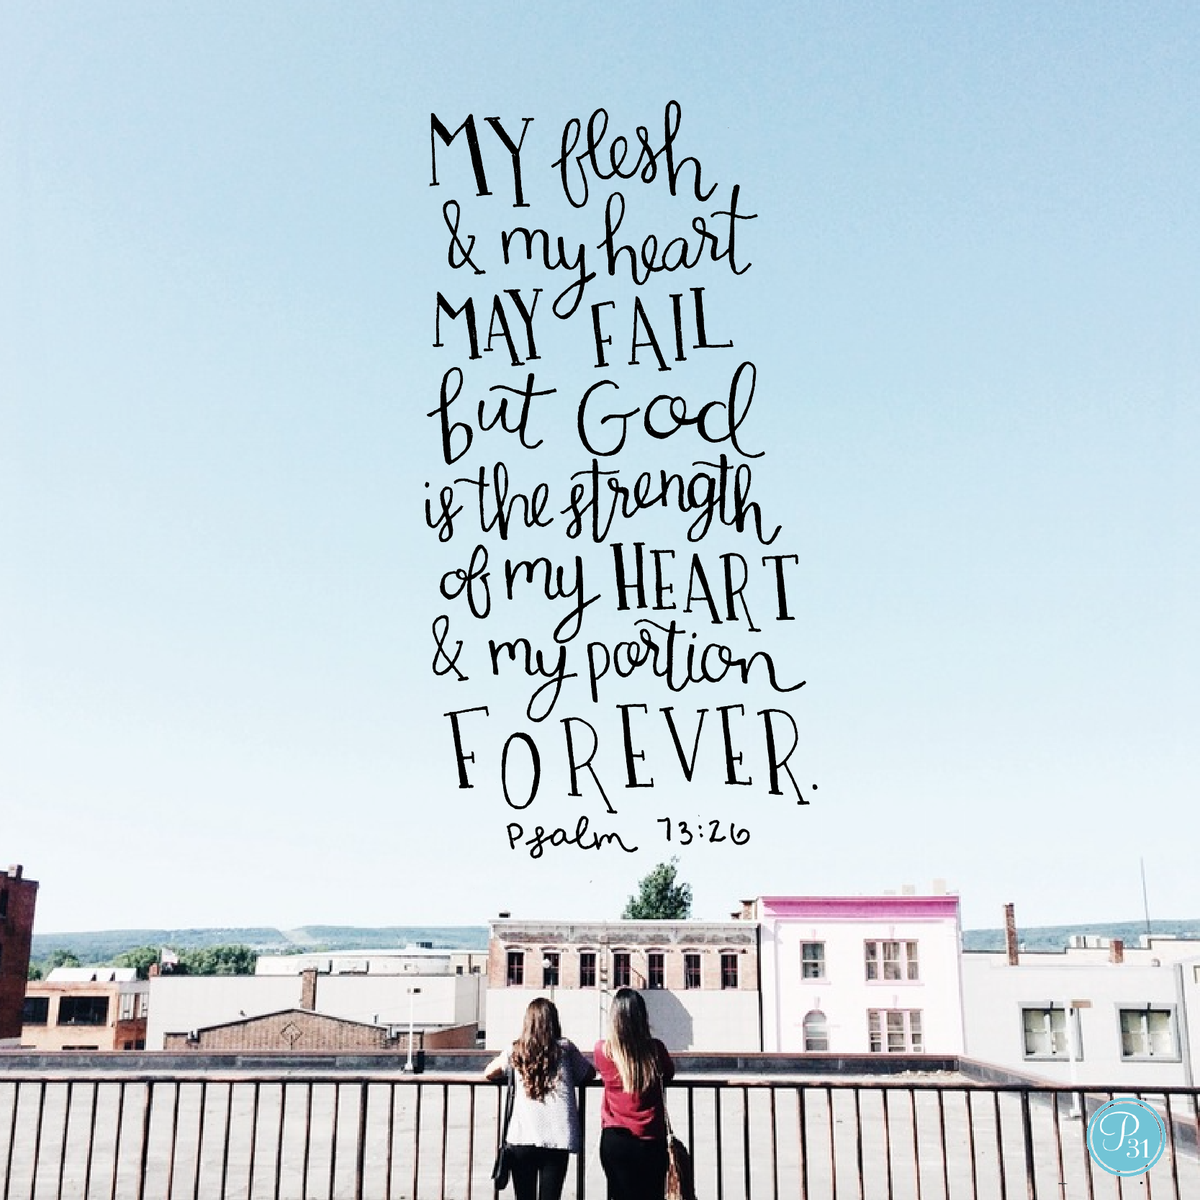 MY flesh
& my heart
MAY FAIL
but God
is the strength
of my HEART
& my portion
FOREVER.
Psalm 73:26
P31